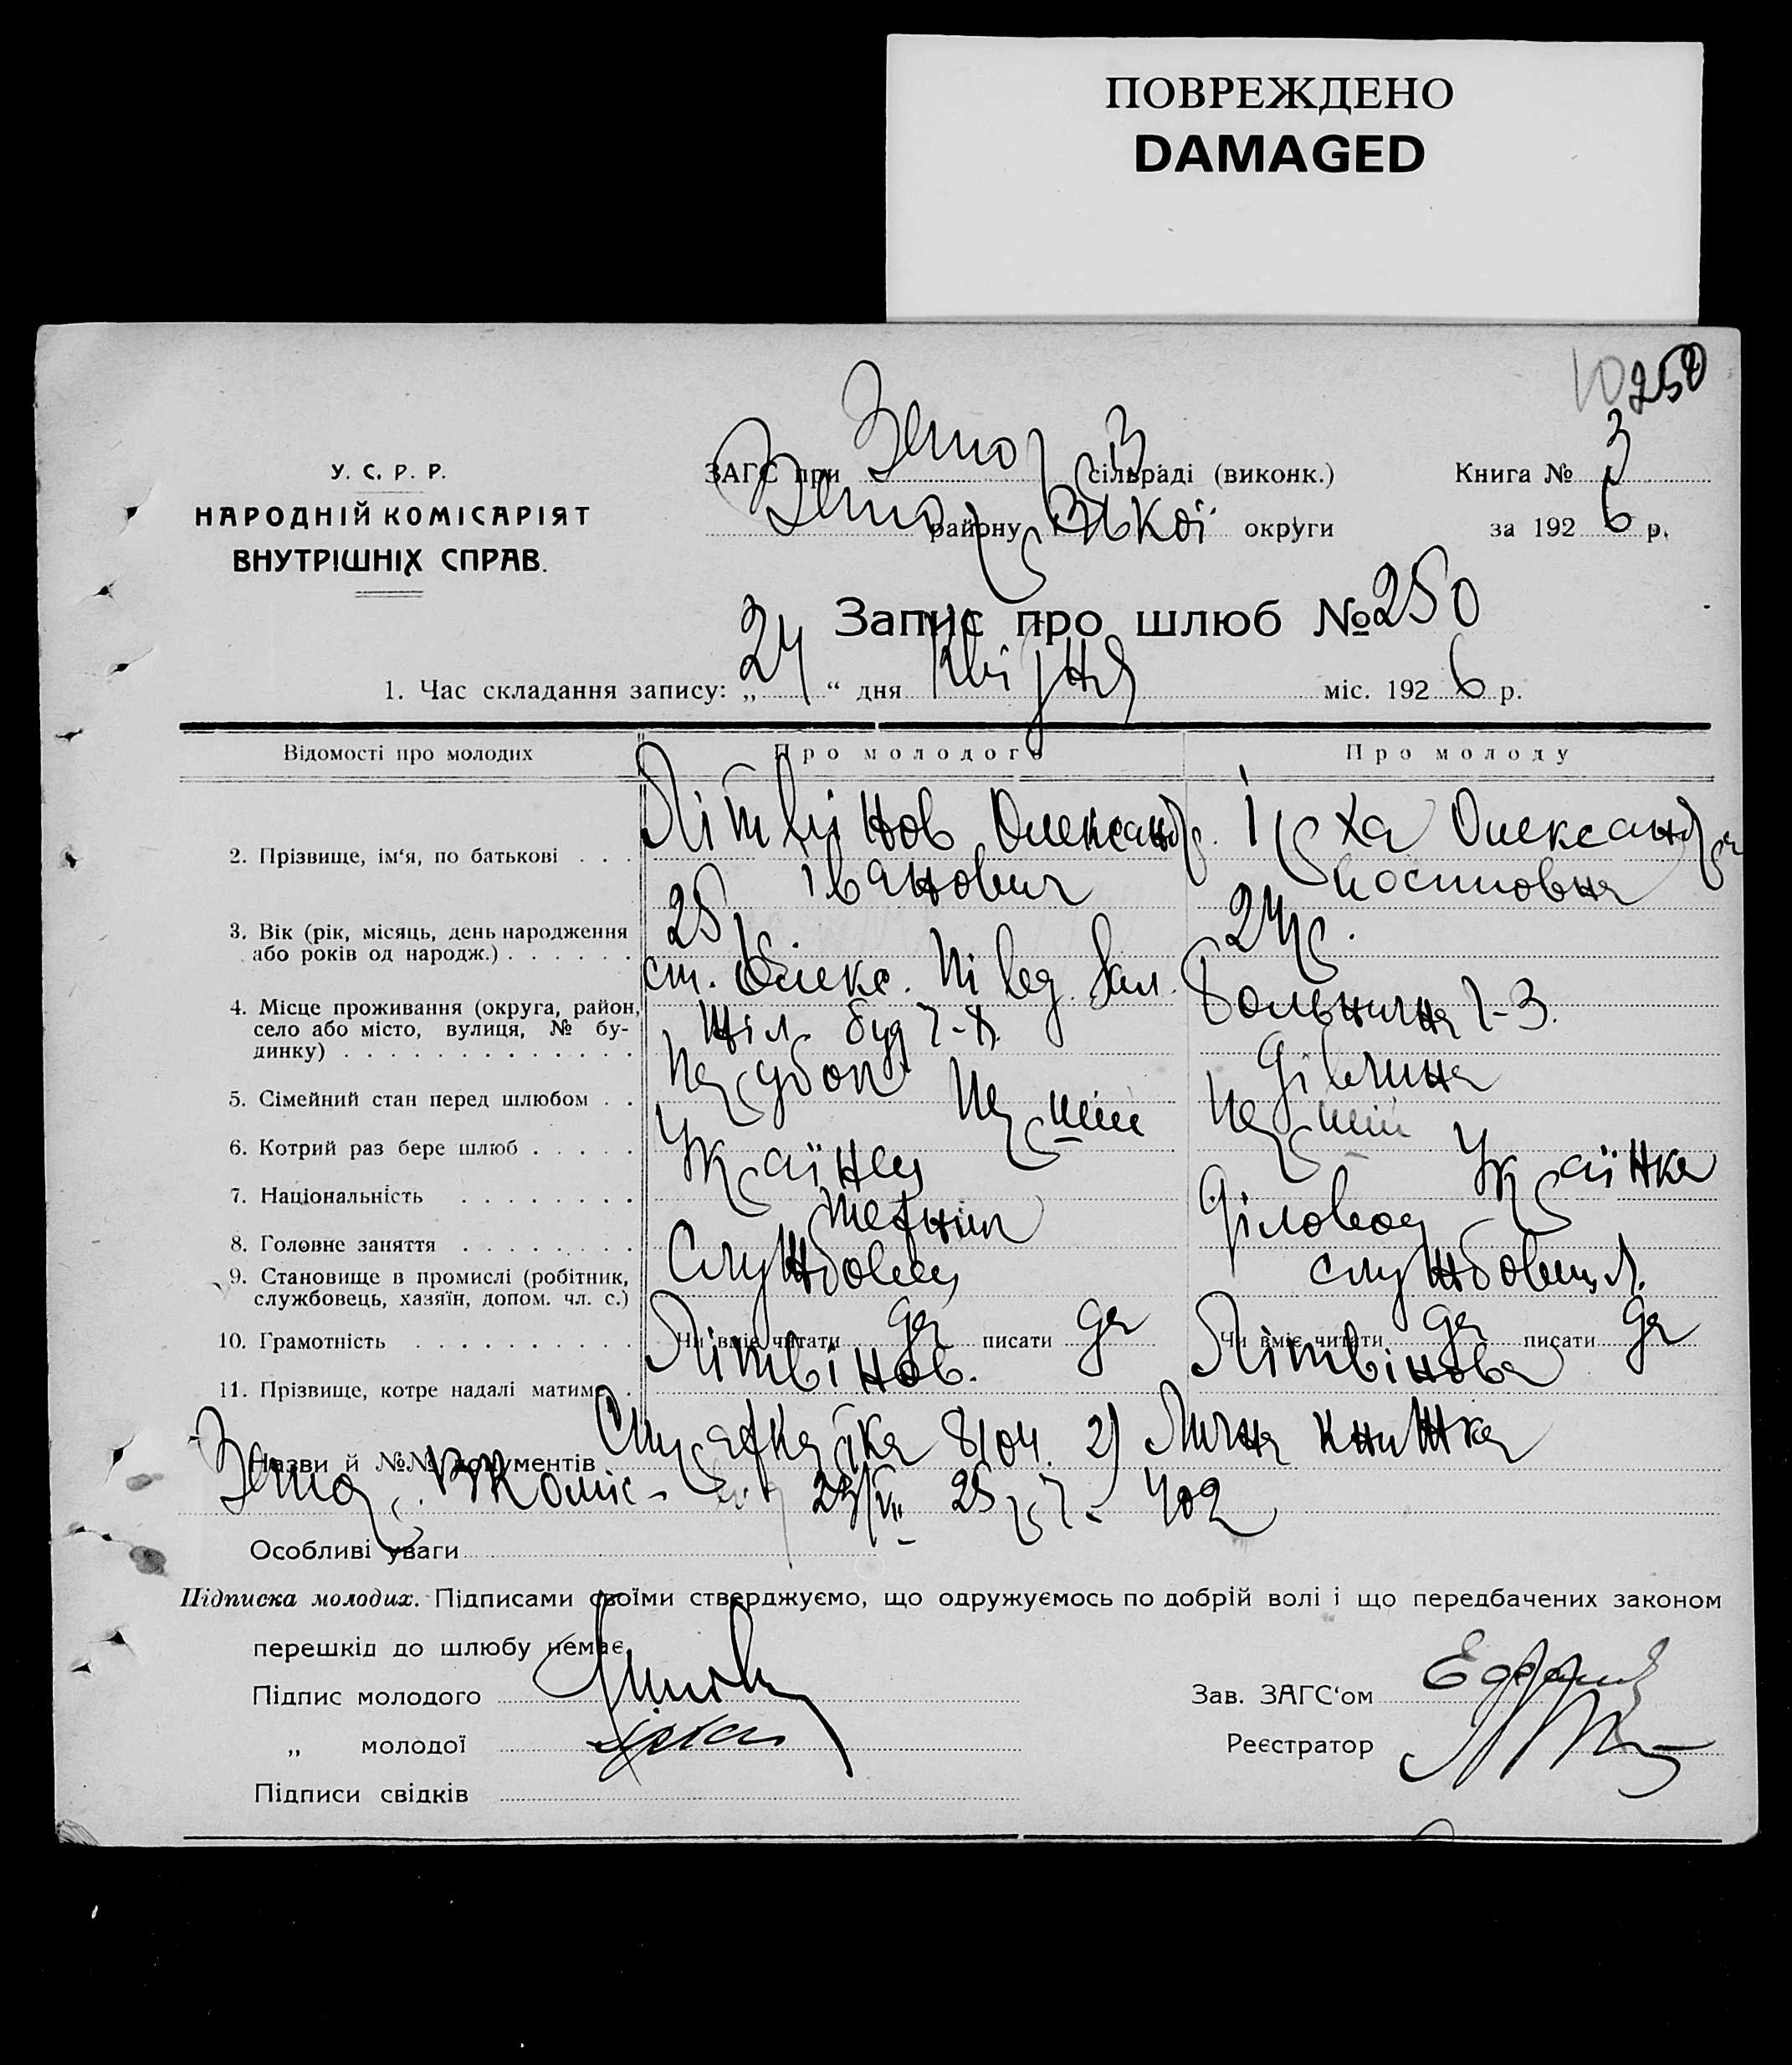 ПОВРЕЖДЕНО
DAMAGED
250
У. С. Р. Р.
НАРОДНІЙ КОМІСАРІЯТ
ВНУТРІШНІХ СПРАВ.
ЗАГС при сільраді (виконк.) Книга № 3
району округи за 1926 р.
Запис про шлюб № 250
1. Час складання запису: „24“ дня Квітня міс. 1926 р.
Відомості про молодих Про молодого Про молоду
2. Прізвище, ім‘я, по батькові Літвінов Олександр. Ірха Олександра
Іванович Йосиповна
3. Вік (рік, місяць, день народження 25 р. 24 р.
або років од народж.)
4. Місце проживання (округа, район, ст. Олекс. Півд. Зал. Больнична 7-3.
село або місто, вулиця, № бу- Жіл. буд 7-
динку)
5. Сімейний стан перед шлюбом Парубок Дівчина
6. Котрий раз бере шлюб Перший Перший
7. Національність Українец Українка
8. Головне заняття Технік Діловод
9. Становище в промислі (робітник, Службовец службовиця.
службовець, хазяїн, допом. чл. с.)
10. Грамотність Чи вміє читати да писати да Чи вміє читати да писати да
11. Прізвище, котре надалі матиме Літвінов. Літвінова
Назви й №№ документів 2) Лична книжка
402
Особливі уваги
Підписка молодих. Підписами своїми стверджуємо, що одружуємось по добрій волі і що передбачених законом
перешкід до шлюбу немає
Підпис молодого Зав. ЗАГС‘ом
„ молодої Ірха Реєстратор
Підписи свідків